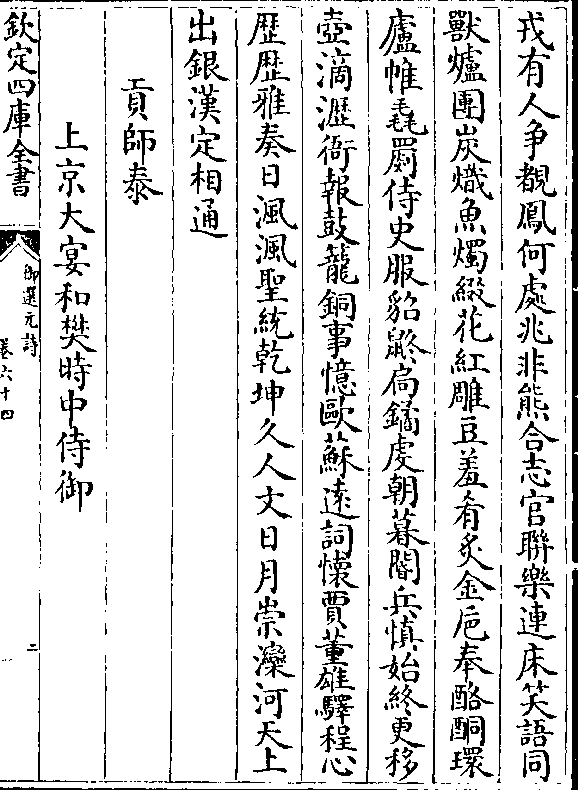 戎有人争覩鳳何處兆非熊合志官聯樂連床笑語同
獸爐團炭熾魚燭綴花紅雕豆羞肴炙金巵奉酪酮環
廬帷毳罽侍史服貂鼨扃鐍虔朝暮閽兵慎始終更移
壺滴瀝衙報鼓籠銅事憶歐蘇逺詞懷賈董雄驛程心
歴歴雅奏日渢渢聖統乾坤久人文日月崇灤河天上
出銀漢定相通
貢師泰
上京大宴和樊時中侍御
欽定四庫全書
御選元詩
卷六十四
二